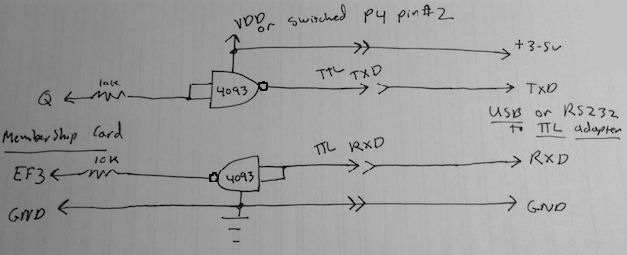 VDD or switched P4 pin#2
+3-5v
10K
4093
TTL TXD
TXD
Q
USB or RS232
to TTL adapter
Membership Card
10K
4093
TTL RXD
RXD
EF3
GND
GND